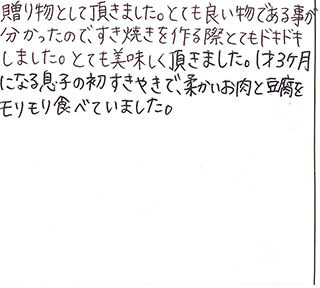 贈り物として頂きました。とても良い物である事が
分かったので、すき焼きを作る際とてもドキドキ
しました。とても美味しく頂きました。1才3ケ月
になる息子の初すきやきで、柔かいお肉と豆腐を
モリモリ食べていました。